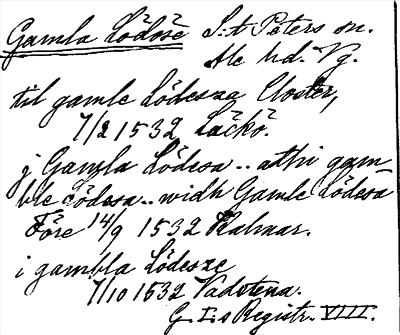 Gamla Lödöse S:t Peters sn.
Ale hd. Vg.
til gamle Lödesza Closter,
7/2 1532 Läckö.
j Gamla Lödesa .. athi gam-
ble Lödesa .. widh Gamle Lödesa
Före 14/9 1532 Kalmar.
i gambla Lödesze
7/10 1532 Vadstena.
G. I:s Registr. VIII.